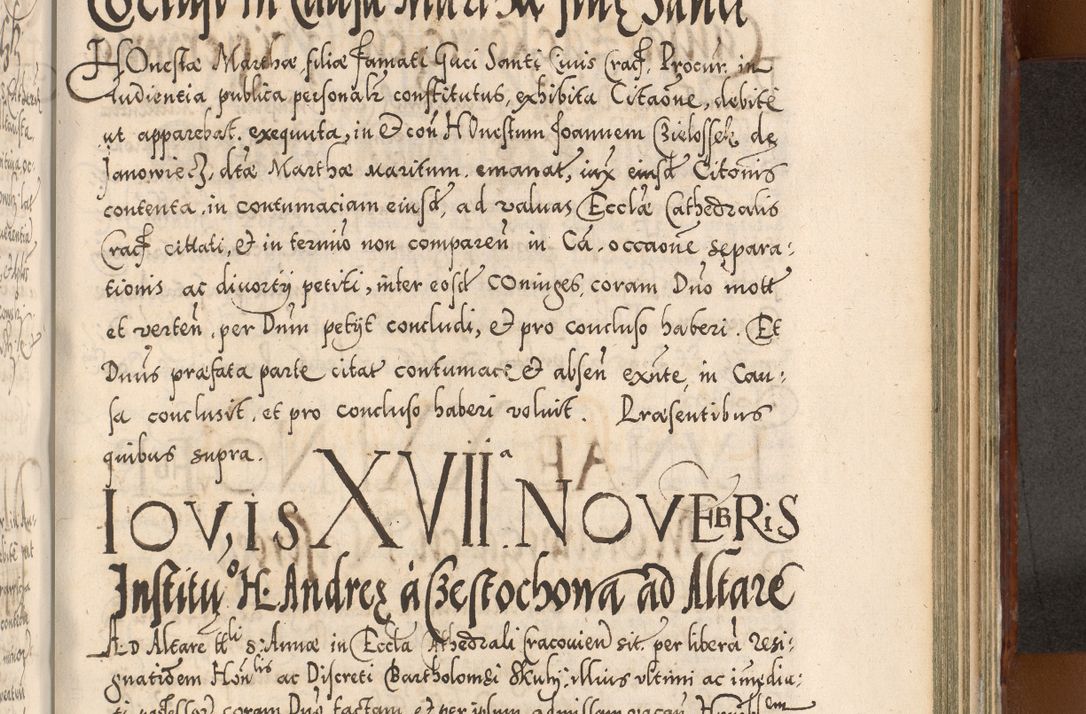 HOnestæ Marthæ, filiæ famati Gaci Santi Ciuis Crac͞. Procur. in
Audientia publica personalr constitutus, exhibita Citaõne, debite
ut apparebat. exequuta, in & coñ HOnestum Joannem Czielossek de
Janowiecz, dctæ Marthæ maritum. emanat, iux eiusd Citõnis
contenta, in contumaciam eiusd, ad valuas Ecclæ Cathedralis
Crac͞ cittati, & in termio non compareñ in Cã. occaõne separa:
tionis ac diuortij petiti, inter eosd COniuges, coram Dño mott
et verteñ, per Dnm petijt concludi, & pro concluso haberi. Et
Dnus præfata parte citat contumace & abseñ exñte, in Cau:
sa conclusit, et pro concluso haberi voluit. Præsentibus
quibus supra.
IOVIS XVIIª NOVEBRIS
Institu͞º H. Andreę à Częstochowa ad Altare
AD Altare ttli S: Annæ in Eccla Cthedrali Cracouien sit. per liberã resi:
gnatiõem Honlis ac Discreti Bartholomęi Skuly. illius vltimi ac imędia: